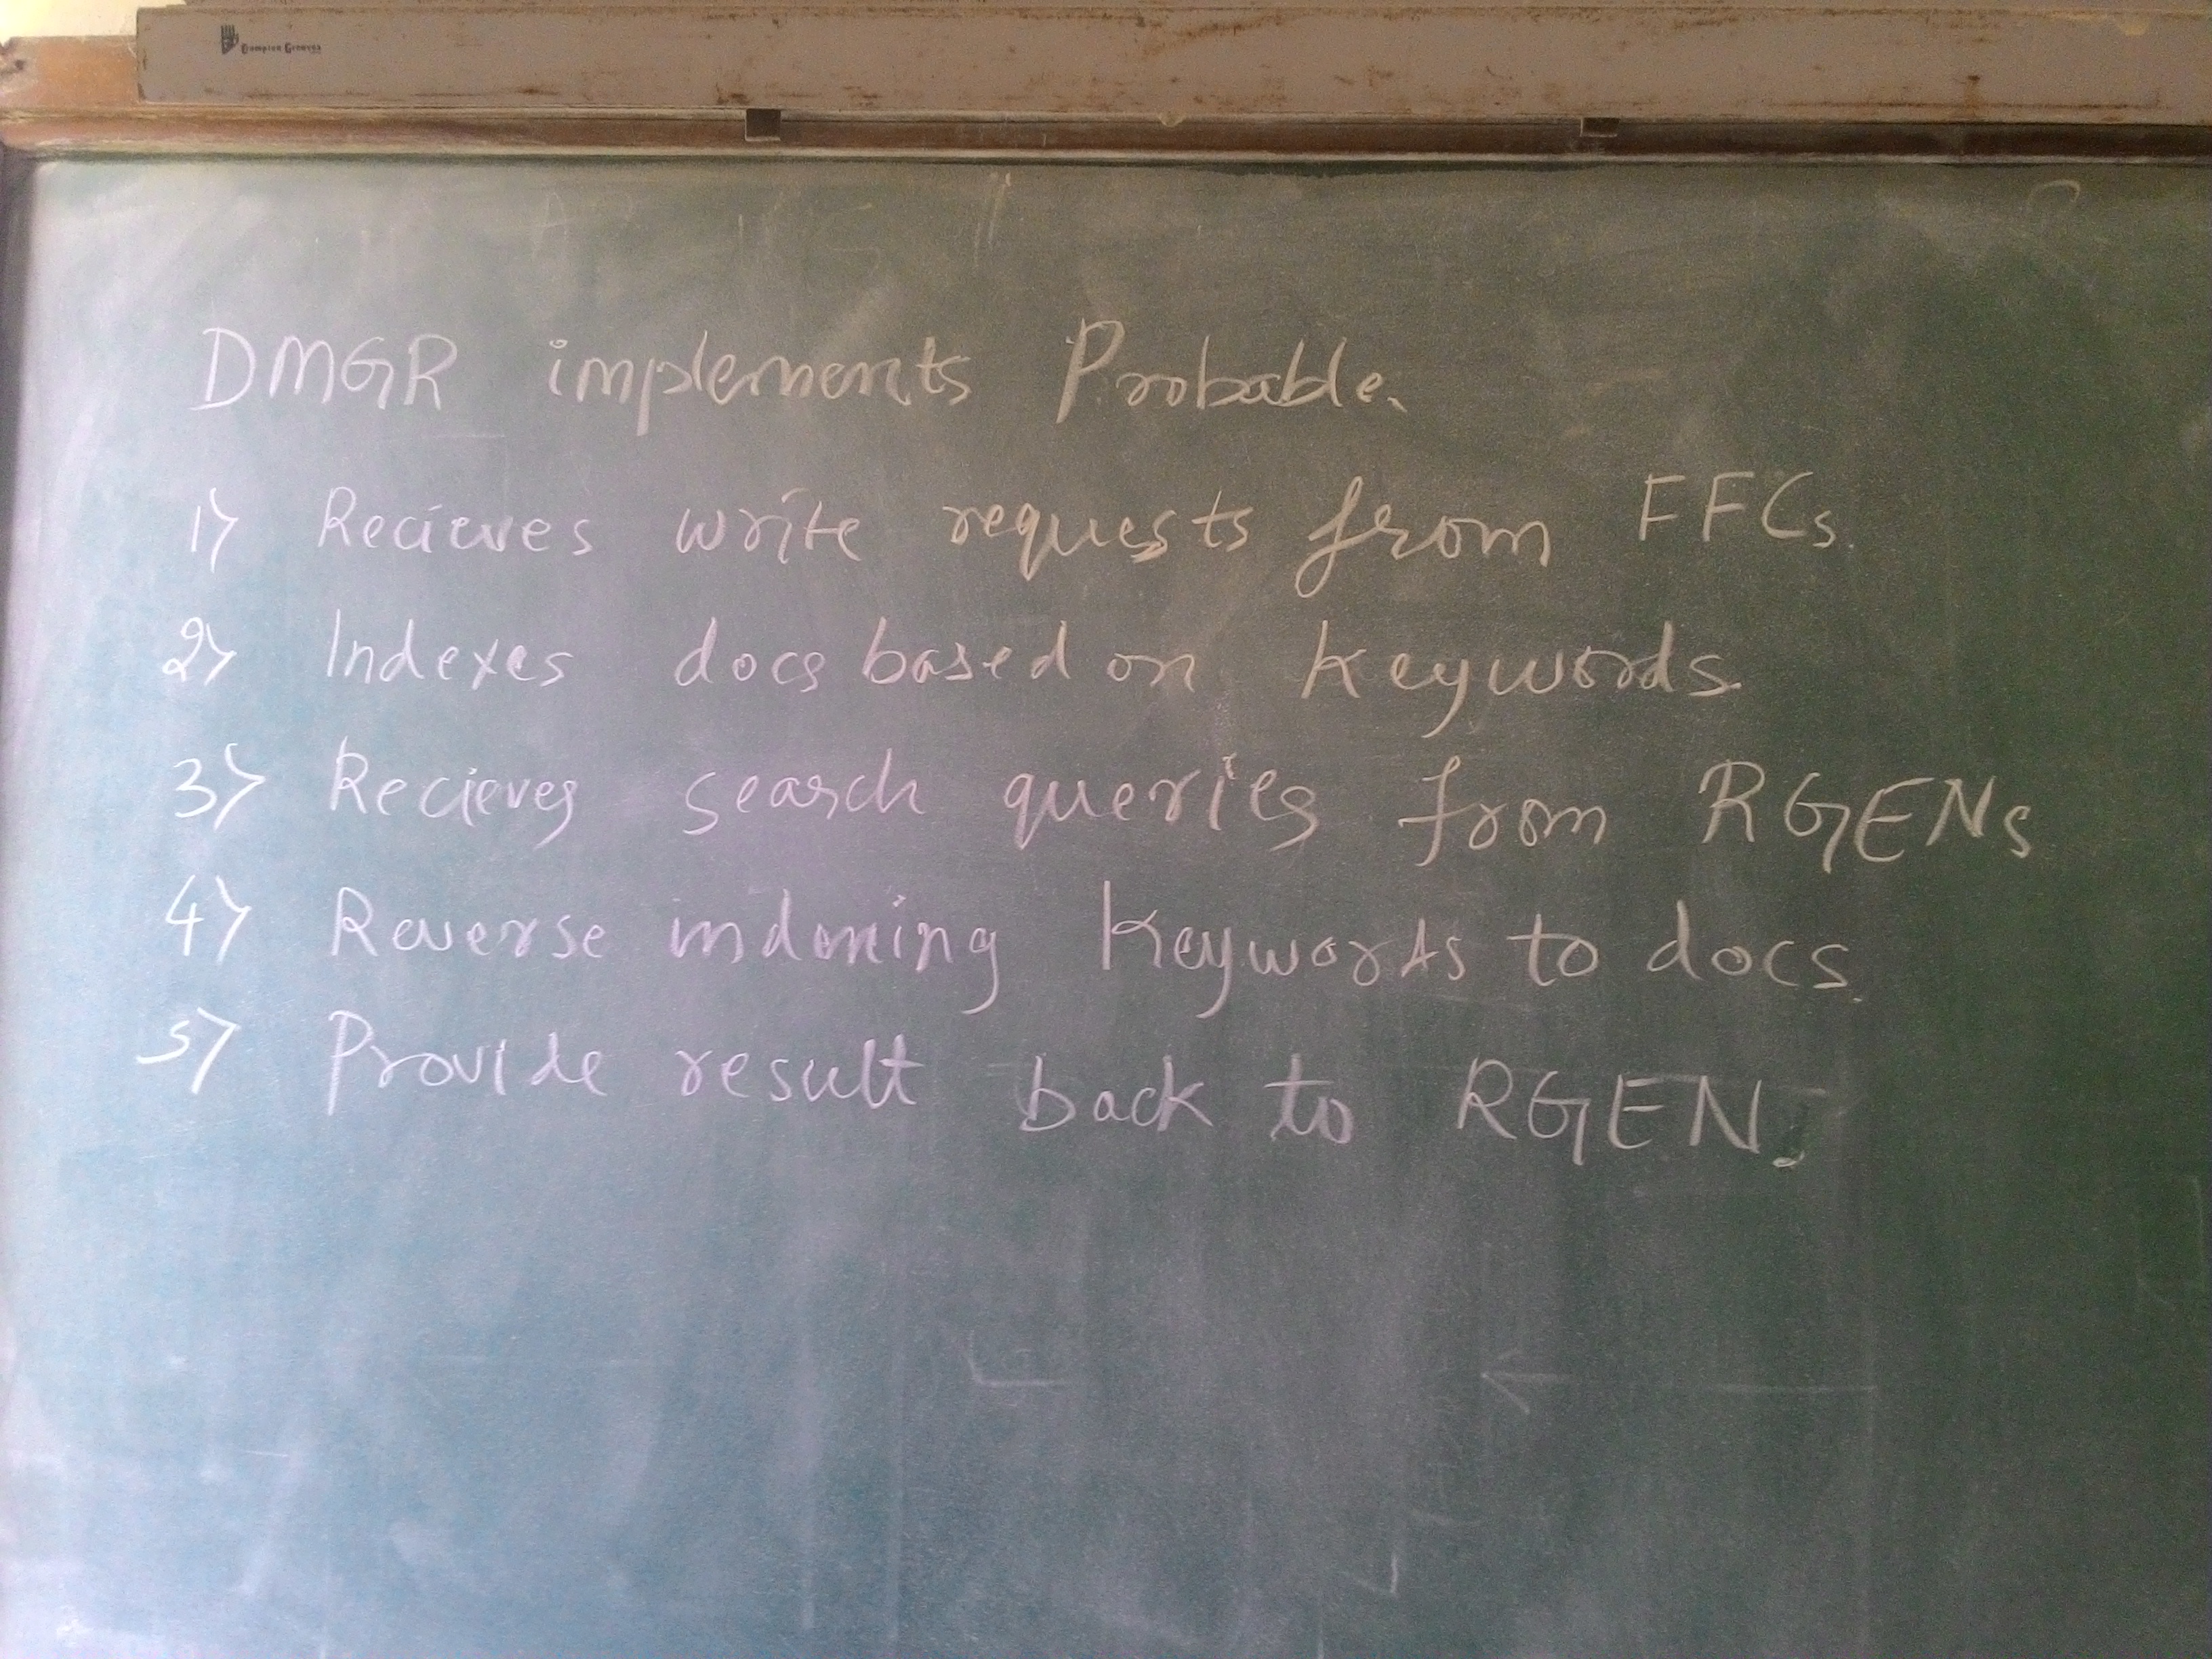 Crompton Greaves
DMGR implements Probable.
1> Recieves write requests from FFCs.
2> Indexes docs based on keywords
3> Recieves search queries from RGENs
4> Reverse indexing keywords to docs.
5> Provide result back to RGEN.